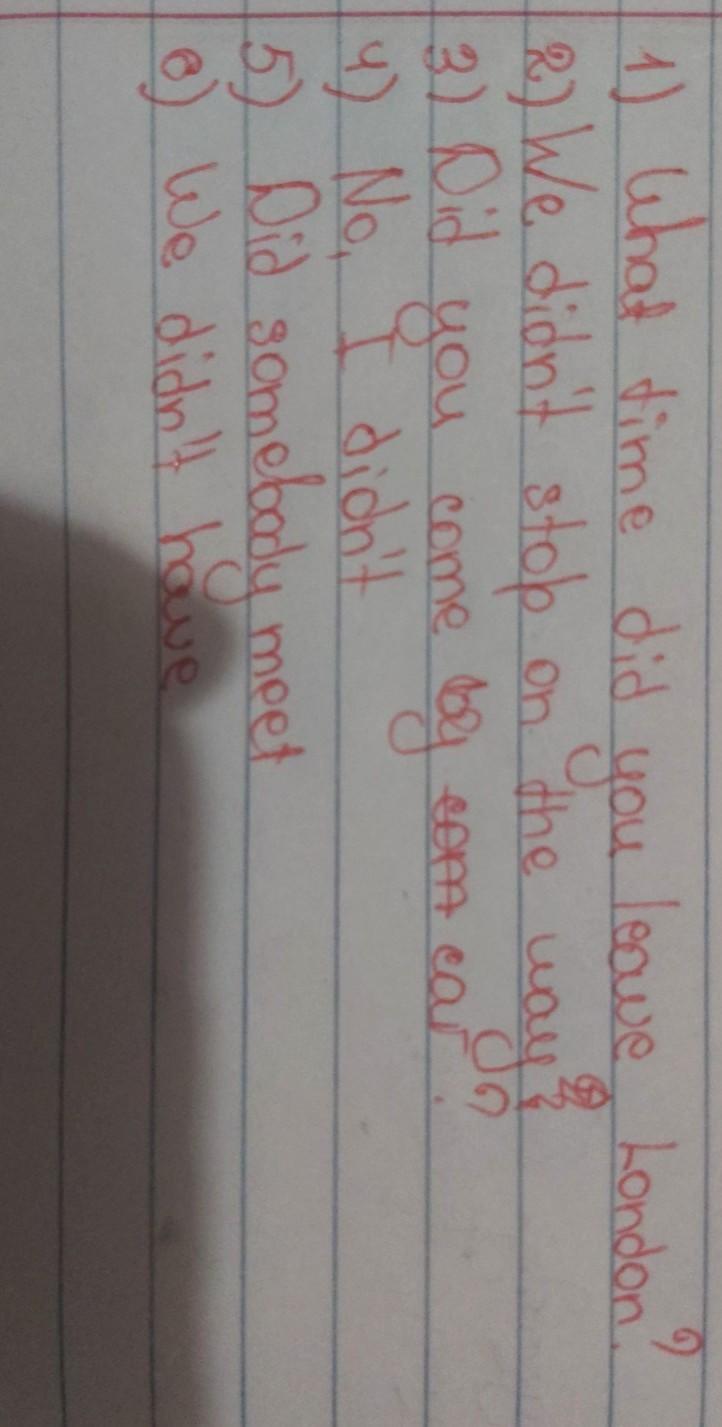 1) What time did you leave London?
2) We didn't stop on the way
3) Did you come by com car?
4) No, I didn't
5) Did somebody meet
6) We didn't have